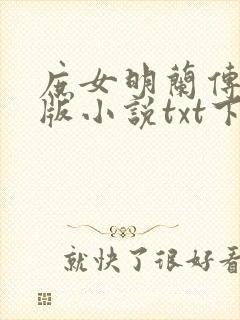 庶女明蘭傳
版小說txt下
就快了很好看